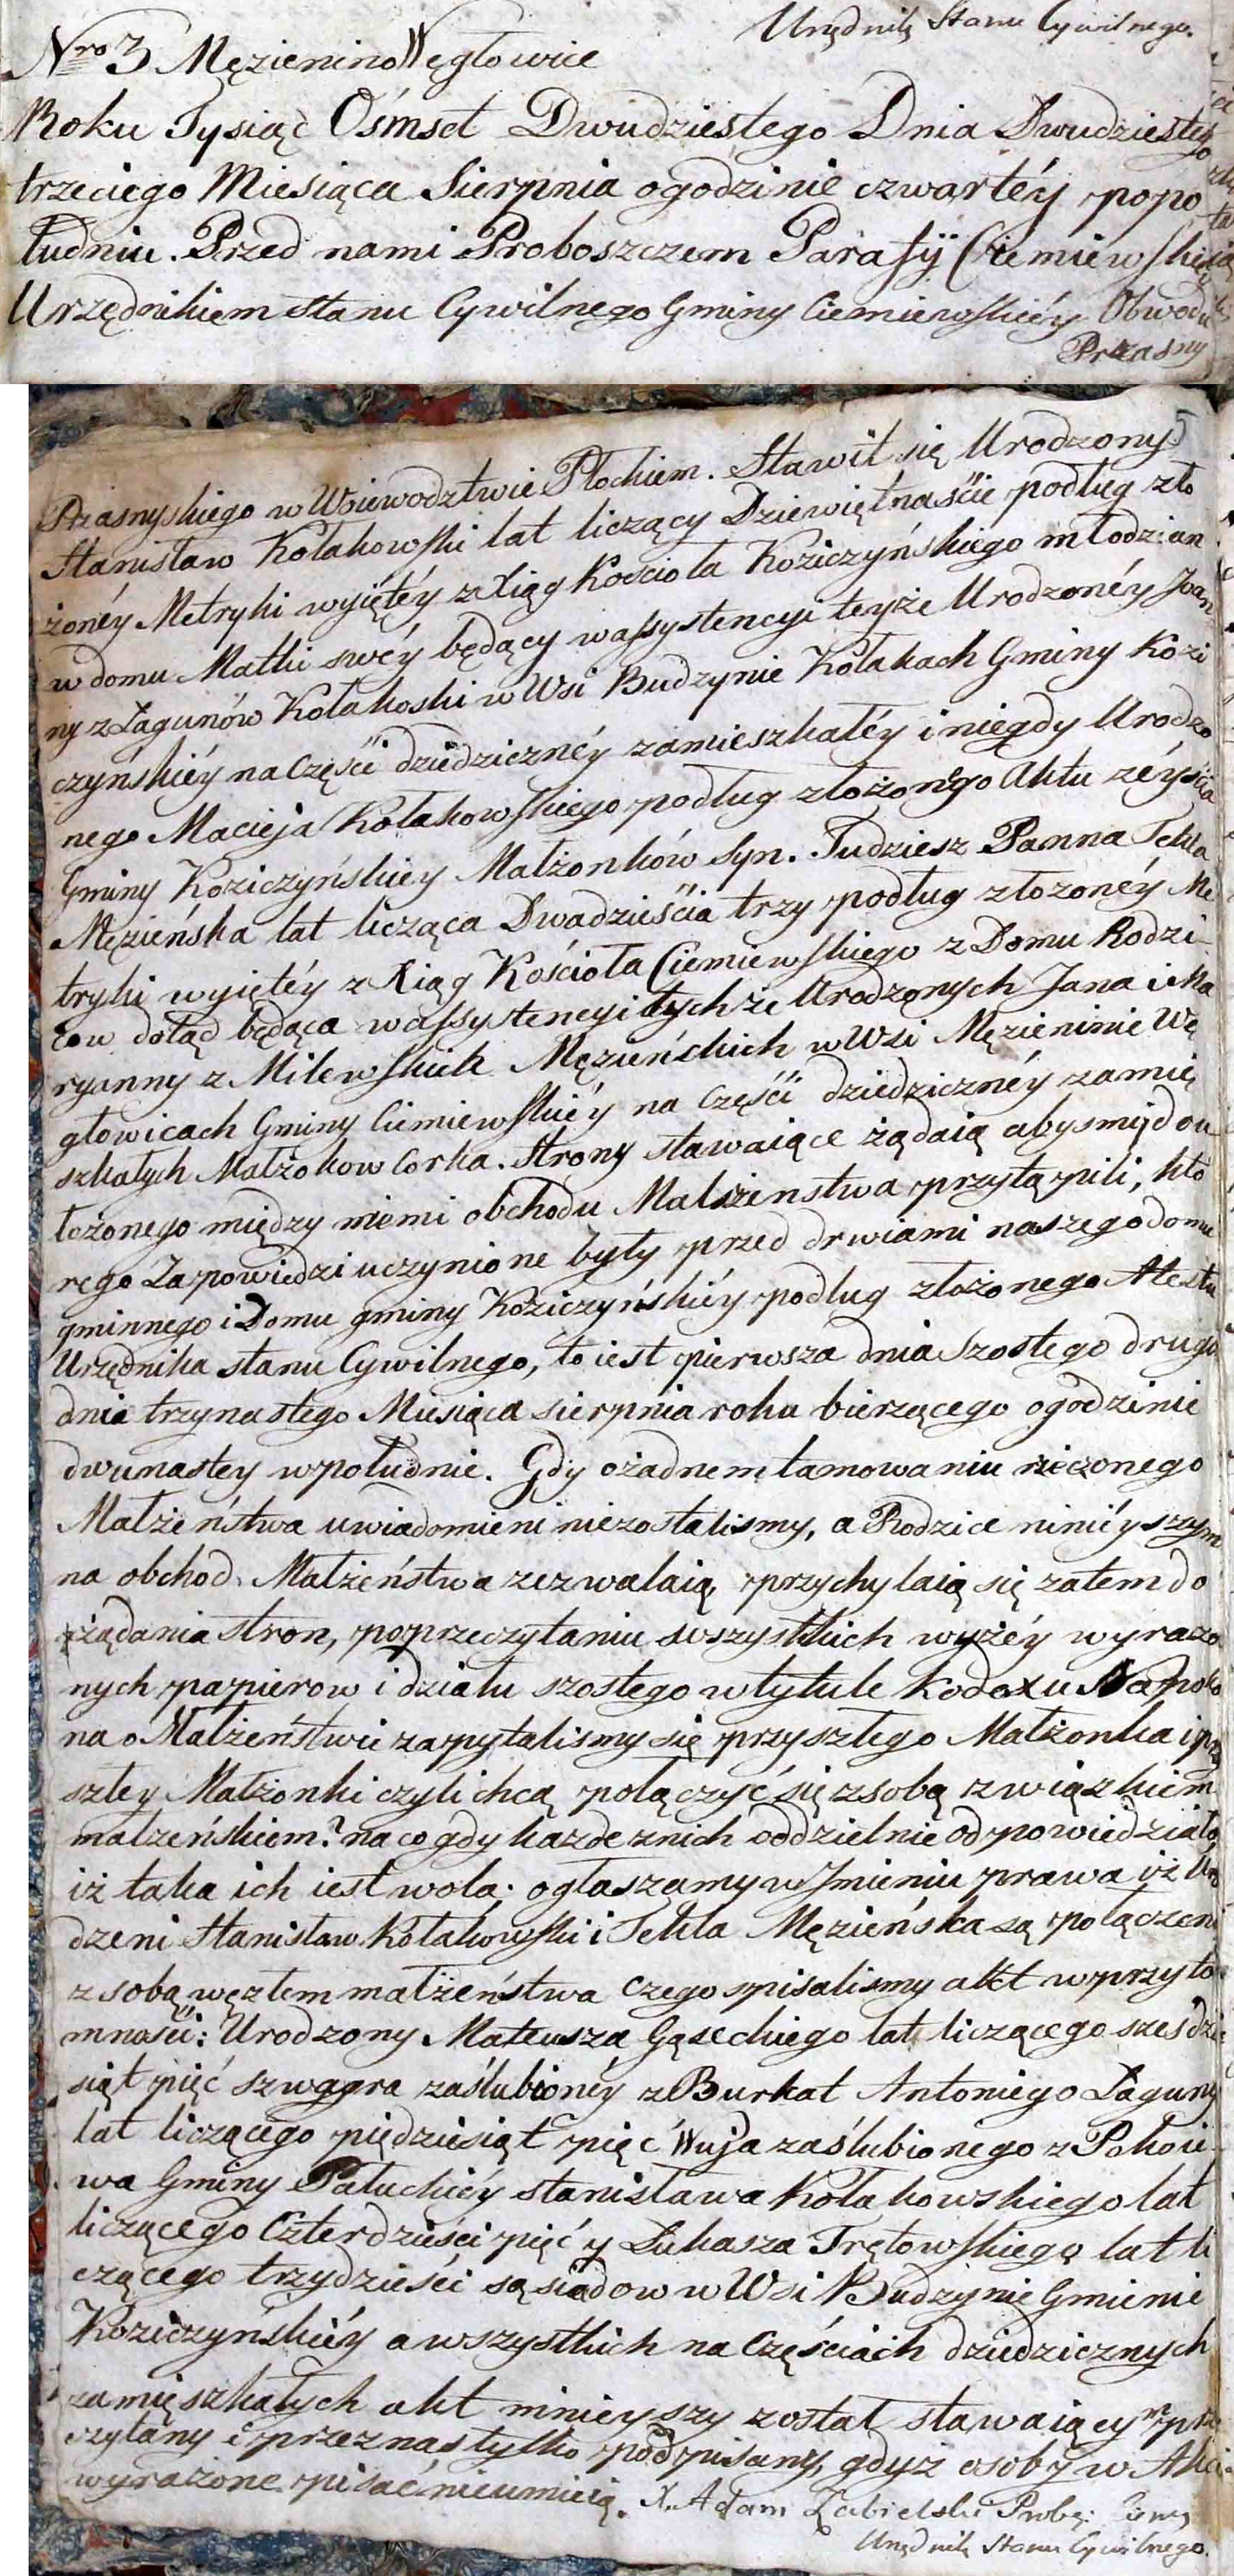 Urzędnik Stanu Cywilnego.
Nro 3 Męzienino Węgłowice
Roku Tysiąć Ośmset Dwudziestego Dnia Dwudziestego
trzeciego Miesiąca Sierpnia ogodzinie czwartéy popo
łudniu. Przed nami Proboszczem Parafÿ Ciemiewskiéy
Urzędnikiem stanu Cywilnego Gminy Ciemiewskiéy Obwodu
Przasny
Przasnyskiego w Woiewodztwie Płockiem. Stawił się Urodzony
Stanisław Kołakowski lat liczący Dziewiętnaście podług zło
żonéy Metryki wyiętéy z Xiąg Kościoła Koziczyńskiego młodzian
w domu Matki swéy będący wassystencyi teyże Urodzonéy Joan
ny z Łagunów Kołakoski w Wsi Budzynie Kołakach Gminy Kozi
czyńskiéy na Części dziedzicznéy zamieszkałéy i niegdy Urodzo
nego Macieja Kołakowskiego podług złożonego Aktu zéyścia
Gminy Koziczyńskiey Małżonków Syn. Tudziesz Panna Tekla
Męzieńska lat licząca Dwadzieścia trzy podług złozonéy Me
tryki wyiętéy z Xiąg Kościoła Ciemiewskiego z Domu Rodzi
ców dotąd będąca wassystencyi tychże Urodzonych Jana i Ma
ryanny z Milewskich Męzieńskich w Wsi Męzieninie Wę
głowicach Gminy Ciemiewskiéy na części dziedzicznéy zamie
szkałych Małżokow Corka. Strony stawaiące żądaią abysmy do u
łożonego między niemi obchodu Małżenstwa przystąpili, któ
rego Zapowiedzi uczynione były przed drwiami naszego domu
gminnego i Domu gminy Koziczyńskiéy podług złożonego Atestu
Urzędnika stanu Cywilnego, to iest pierwsza dnia Szostego druga
dnia trzynastego Miesiąca sierpnia roku bierzącego ogodzinie
dwunastey wpołudnie. Gdy ożadnem tamowaniu rzeczonego
Małżeństwa uwiadomieni niezostalismy, a Rodzice niniéyszym
na obchod Małżeństwa zezwalaią, przychylaią się zatem do
żądania stron, poprzeczytaniu wszystkich wyżéy wyrażo
nych papierow i działu szostego wtytule Kodexu Napoleo
na o Małżeństwie zapytalismy się przyszłego Małżonka i przy
szłey Małżonki czyli chcą połączyć się zsobą związkiem
małzeńskiem? na co gdy każde znich oddzielnie odpowiedziało
iż taka ich iest wola: ogłaszamy w Jmieniu prawa iż Uro
dzeni Stanisław Kołakowski i Tekla Męzieńska są połączeni
z sobą węzłem małżeństwa czego spisalismy akt wprzyto
mności: Urodzony Mateusza Gąseckiego lat liczącego szesdzie
siąt pięć szwagra zaślubionéy z Burkat Antoniego Łaguny
lat liczącego piędziesiąt pięć Wuja zaślubionego z Pokoie
wa Gminy Pałuckiéy stanisława Kołakowskiego lat
liczącego Czterdzieści pięć y Łukasza Trętowskiego lat li
czącego trzydzieści sąsiadow w Wsi Budzynie Gminie
Koziczyńskiéy a wszystkich na Częściach dziedzicznych
zamięszkałych akt ninieyszy został stawaiącym prze
czytany i przeznas tylko podpisany, gdyż osoby w Akcie
wyrażone pisać nieumieią. X. Adam Zabielski Probo:
Urzędnik Stanu Cywilnego.